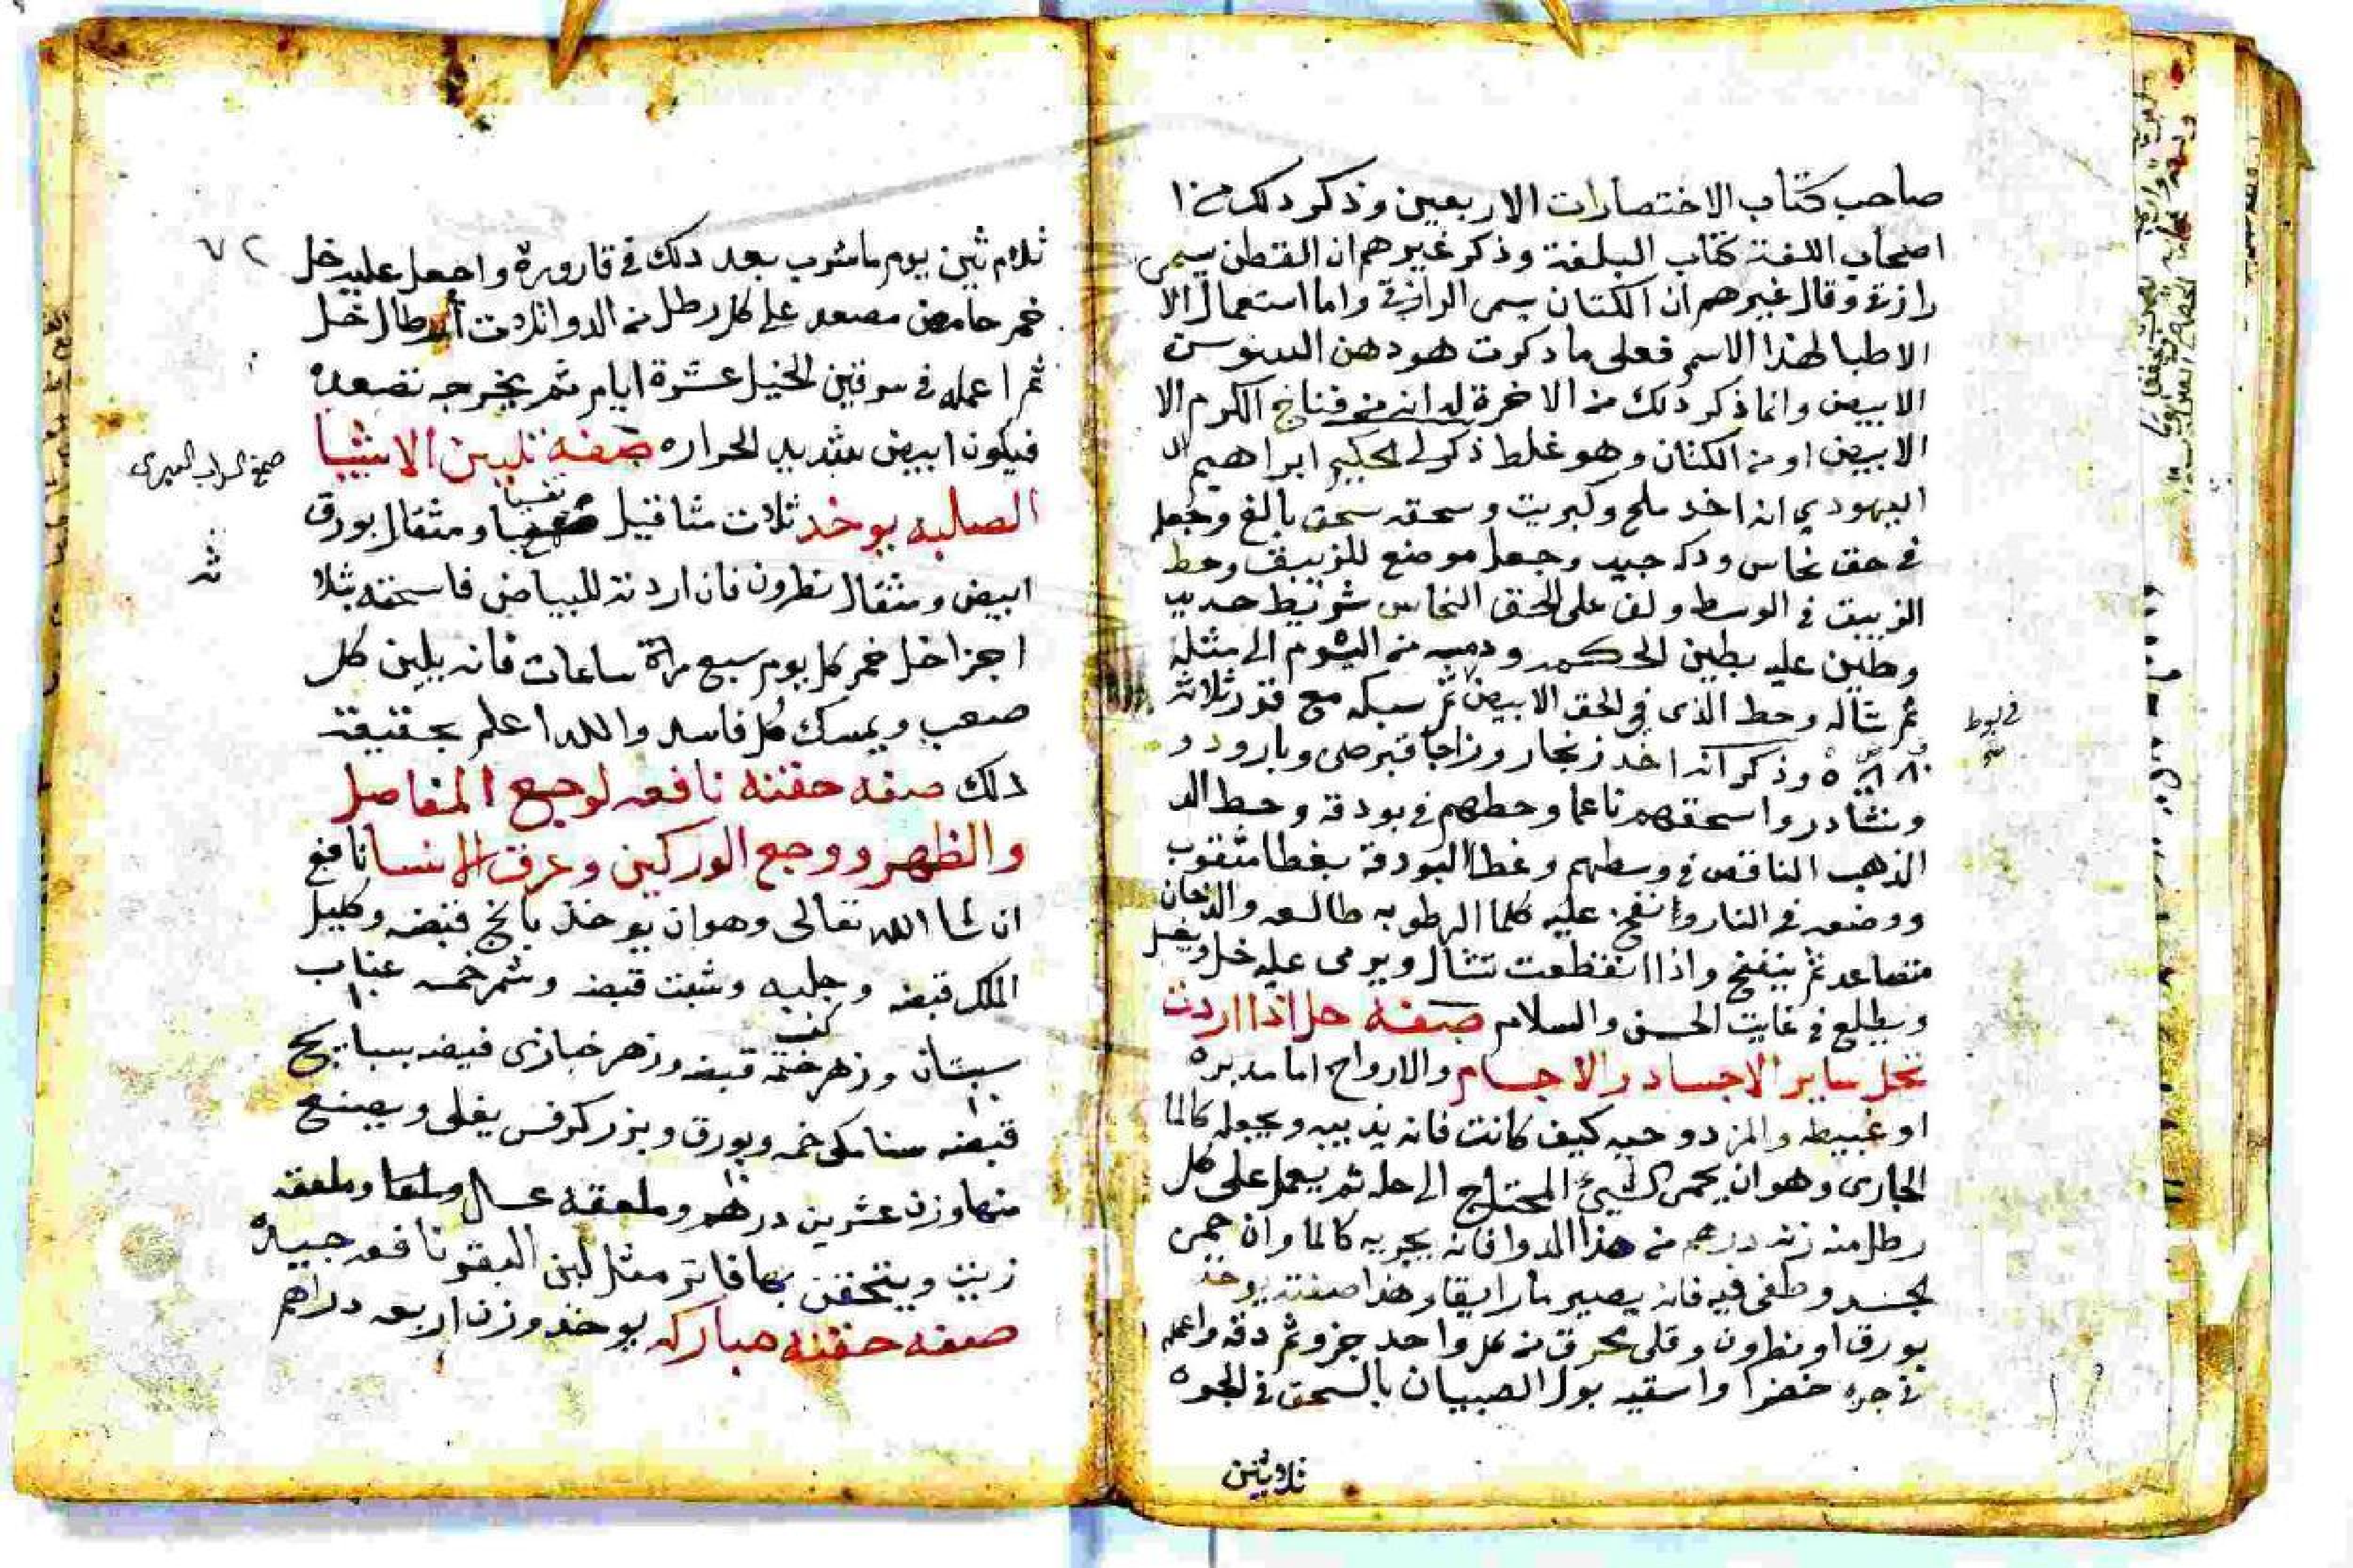 صاحب كتاب الاختصارات الاربعين وذكر دلك من ا
اصحاب اللغة كتاب البلغة وذكر غيرهم ان القطن يسمى
رازقة وقال غيرهم ان الكتان يسمى الرازقة واما استعمال الا
الاطبا لهذا الاسم فعلى ما ذكرت هو دهن السوسن
الابيض وانما ذكر ذلك من الاخرة لدانه من فناخ الكرم الا
الابيض او من الكتان وهو غلط ذكر لى الحكيم ابراهيم ال
اليهودي انه اخد ملح وكبريت وسحقه سحق بالغ وجعل
في حق نحاس ودك جيد وجعل موضع للزيبق وحط
الزيبق في الوسط ولف على الحق النحاس شريط حديد
وطين عليه بطين الحكمه من اليوم الى مثله
ثم شاله وحط الذى في الحق الابيض ثم سبكه مع قدر ثلاثة
وذكر انه اخد زنجار وزاجا قبرصى وبارود و
ونشادر واسحقهم ناعما وحطهم في بودقة وحط الد
الذهب الناقص في وسطهم وغطا البودقة بغطا مثقوب
ووضعه في النار وانفخ عليه كلما الرطوبه طالعه والدخان
متصاعد ثم ينفخ واذا انقطعت تنشال ويرمى عليه خل
ويطلع في غايت الحسن والسلام صفة حل اذا اردت
تحل ساير الاجساد والاجسام والارواح اما مدبره
او غبيطه والمزدوجيه كيف كانت فانه يذيبه ويجعله كالما
الجارى وهو ان يحمى الشيء المحتاج الى حله ثم يعمل على كل
رطل منه زنة درهم من هذا الدوا فانه يجريه كالما وان حمى
الجسد وطفى فيه فانه يصير مارايقا وهذا صفته يوخد
بورق او نطرون وقلى محرق من كل واحد جزو ثم دقه واعمله
في جره خضرا واسقيه بول الصبيان بالسحق في الجره
ثلاثين
في بوط
٧٢
ثلاثين يوم ما شرب بعد دلك في قارورة واجعل عليه خل
خمر حامض مصعد على كل رطل من الدوا ثلاث أرطال خل
ثم اعمله في سرقين الخيل عشرة ايام ثم يخرجه تصعده
فيكون ابيض شديد الحراره صفه تليين الاشيا
الصلبه يوخد ثلاث مثاقيل ومثقال بورق
ابيض ومثقال نطرون فان اردته للبياض فاسحقه بثلا
اجزا خل خمر كل يوم سبع مراة ساعات فانه يلين كل
صعب ويمسك كل فاسد والله اعلم بحقيقة
دلك صفه حقنه نافعه لوجع المفاصل
والظهر ووجع الوركين وعرق الانسا نافع
ان شا الله تعالى وهو ان يوخذ بابنج قبضه وكليل
الملك قبضه وحلبه وشبت قبضه وشمر خمسه عناب
سبستان وزهر ختمه قبضه وزهر خبازى قبضه بسبايج
كف
قبضه سنا مكى خمه وبورق وبزر كرفس يغلى ويصنع
منها وزن عشرين درهم وملعقه عسل وملعقه
زيت ويتحقن بها فاتر مثل لبن البقر نافعه جيده
صفه حقنه مباركه يوخد وزن اربعه دراهم